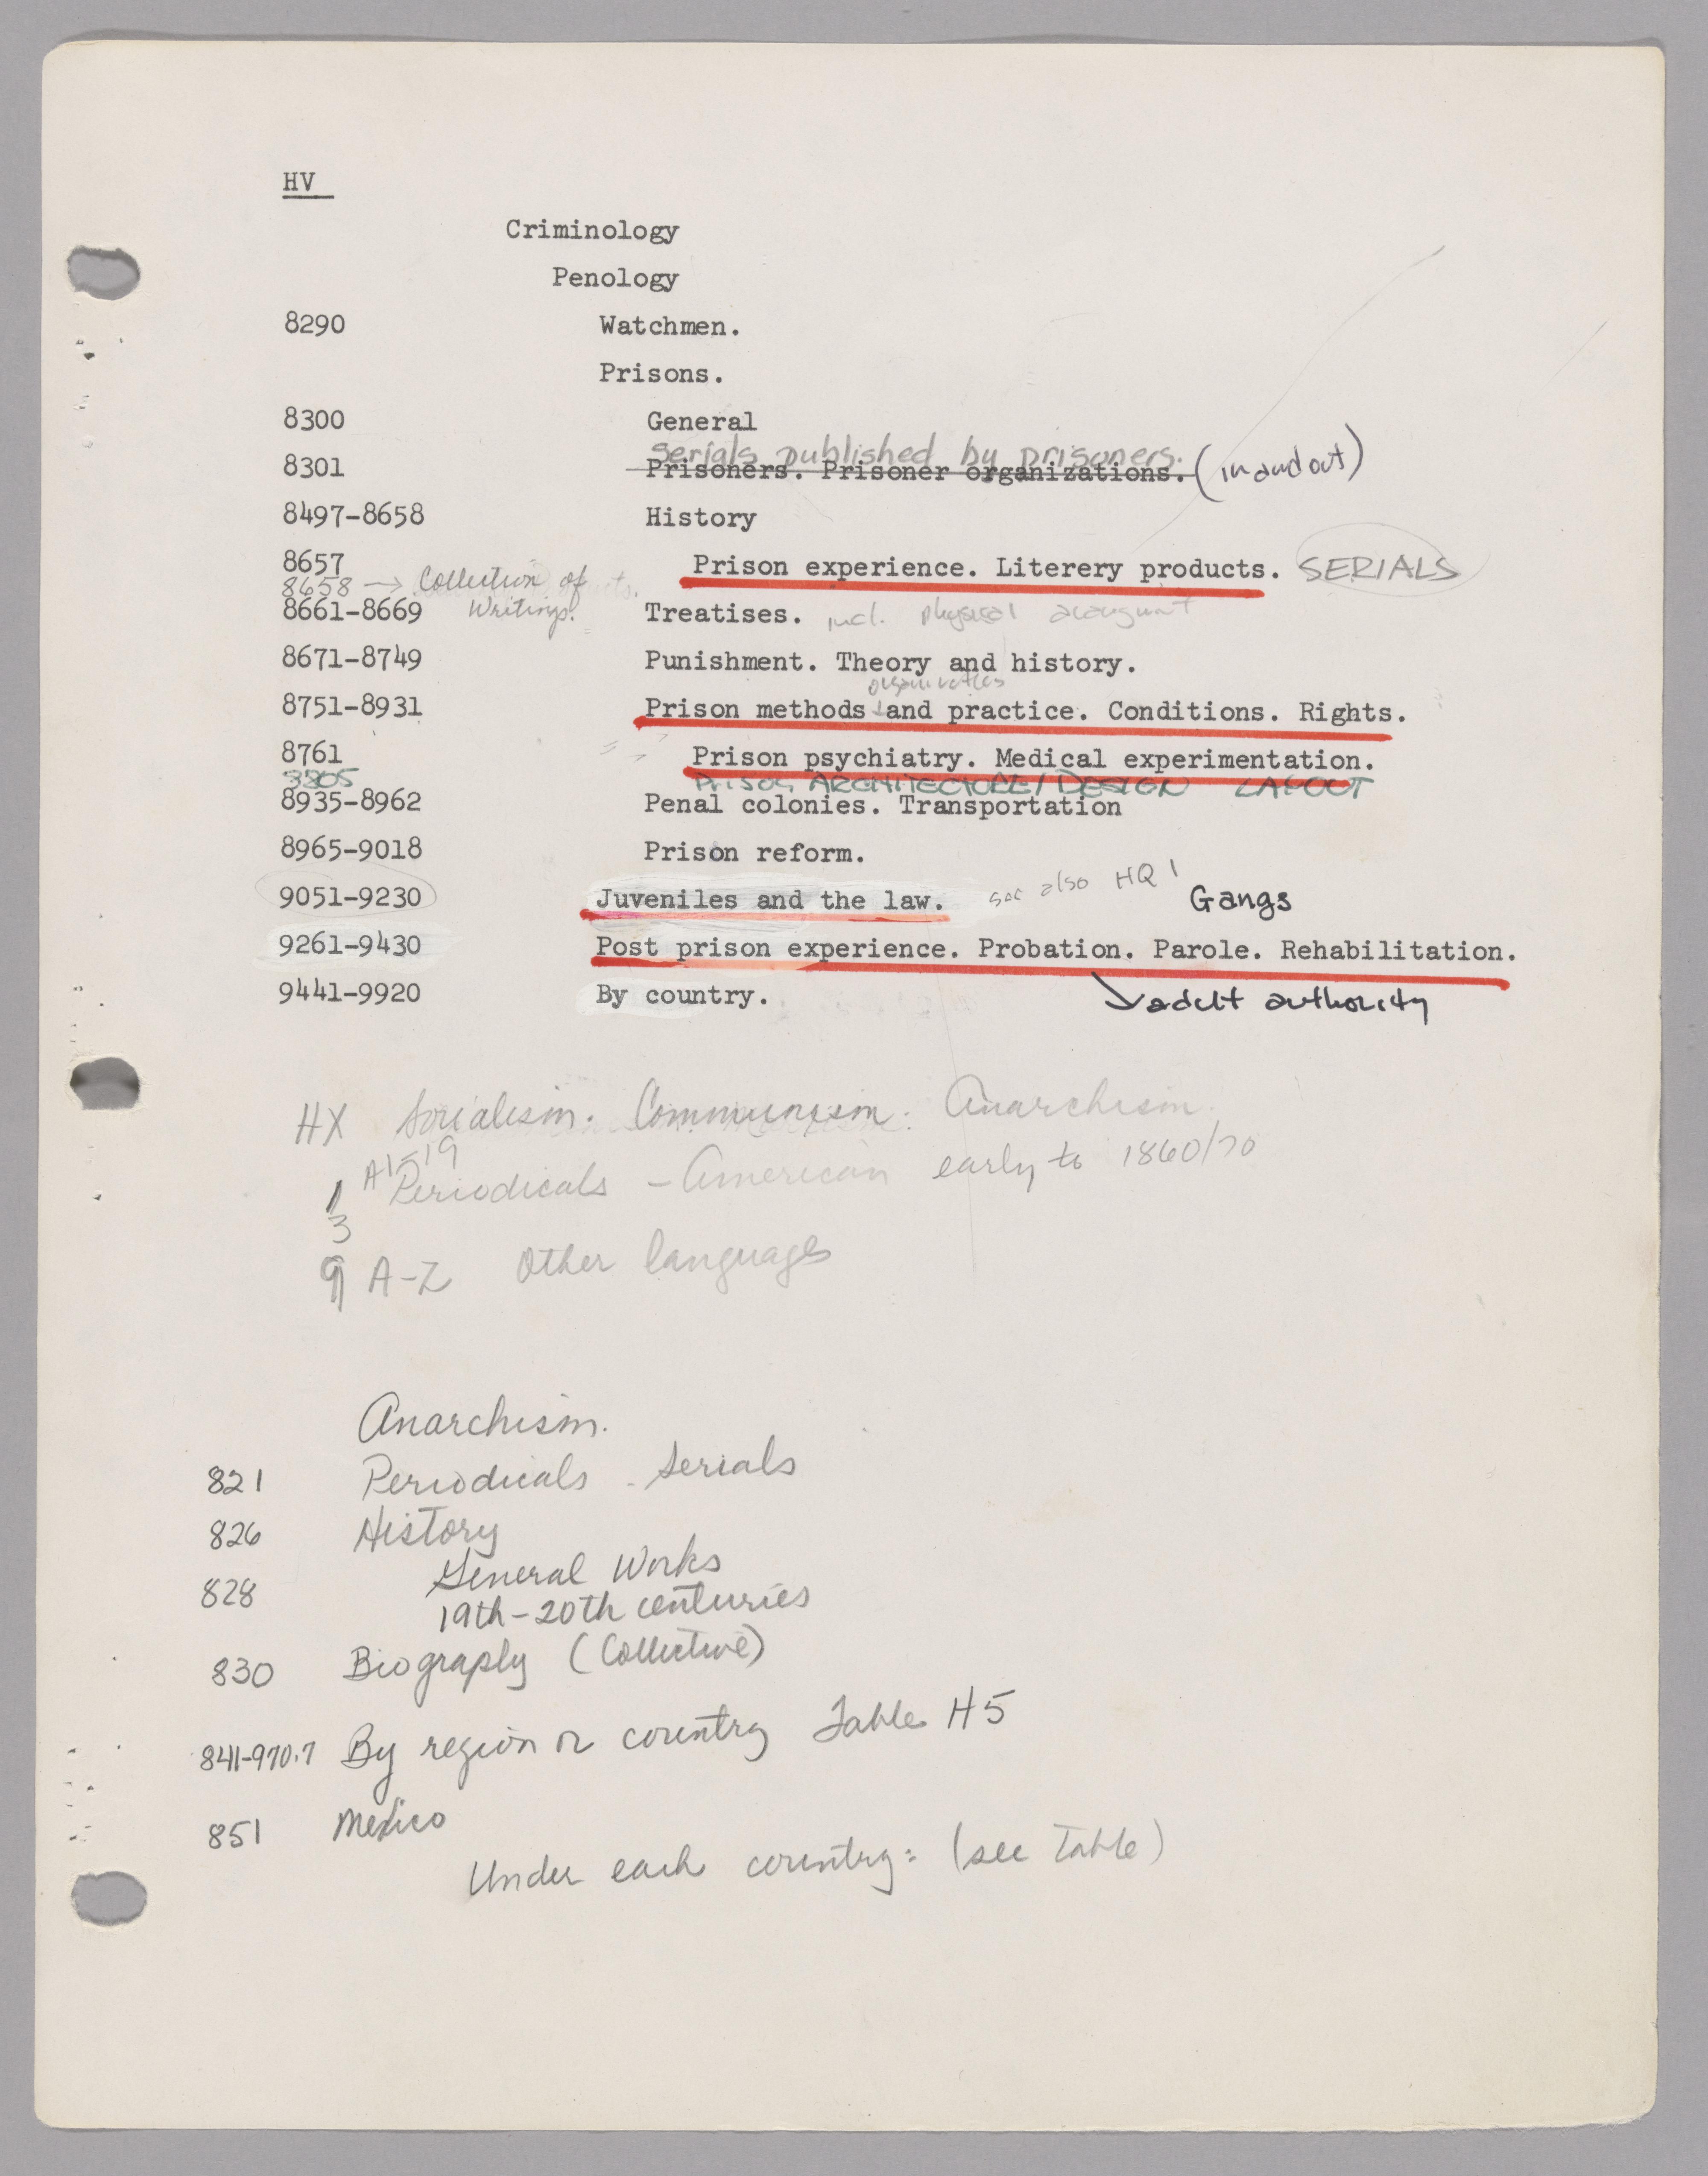 HV
Criminology
Penology
8290 Watchmen.
Prisons.
8300 General
Serials published by prisoners.
8301 Prisoners. Prisoner organizations. (in and out)
8497-8658 History
8657 Prison experience. Literery products. SERIALS
8658 → Collection of
8661-8669 Writings. Treatises. incl. physical
8671-8749 Punishment. Theory and history.
organization
8751-8931 Prison methods and practice. Conditions. Rights.
8761 Prison psychiatry. Medical experimentation.
8805 Prison ARCHITECTURE/DESIGN LAYOUT
8935-8962 Penal colonies. Transportation
8965-9018 Prison reform.
9051-9230 Juveniles and the law. see also HQ! Gangs
9261-9430 Post prison experience. Probation. Parole. Rehabilitation.
9441-9920 By country. adult authority
HX Socialism. Communism. Anarchism.
A1-19
1 Periodicals - American early to 1860/70
3
9 A-Z Other languages
Anarchism.
821 Periodicals - Serials
826 History
General Works
828 19th-20th centuries
830 Biography (Collective)
841-970.7 By region or country Table H5
851 Mexico
Under each country: (see Table)